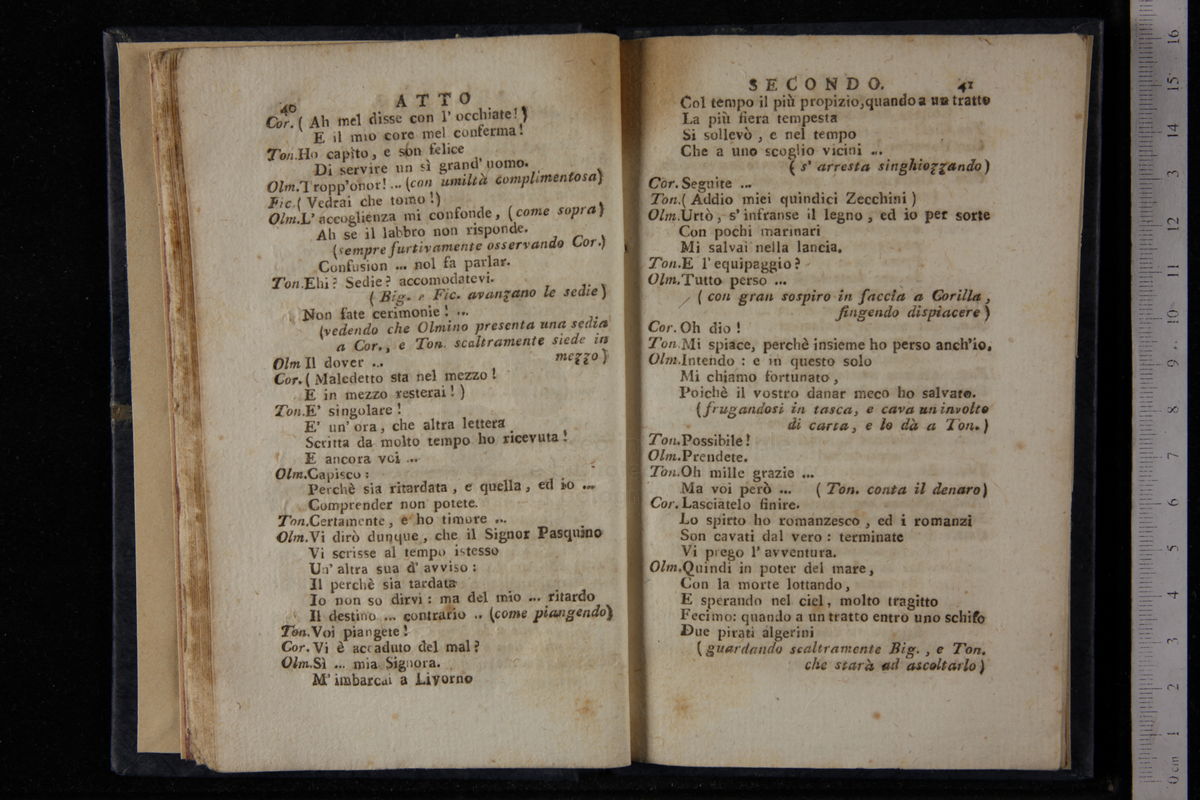 40
ATTO
Cor. ( Ah mel disse con l' occhiate! )
E il mio core mel conferma!
Ton.Ho capito, e son felice
Di servire un sì grand' uomo.
Olm.Tropp'onor! ... (con umiltà complimentosa)
Fic.( Vedrai che tomo!)
Olm.L' accoglienza mi confonde, (come sopra)
Ah se il labbro non risponde.
(sempre furtivamente osservando Cor.)
Confusion ... nol fa parlar.
Ton.Ehi? Sedie? accomodatevi.
( Big. e Fic. avanzano le sedie)
Non fate cerimonie! ...
(vedendo che Olmino presenta una sedia
a Cor., e Ton. scaltramente siede in
mezzo)
Olm Il dover ...
Cor. ( Maledetto sta nel mezzo!
E in mezzo resterai! )
Ton.E' singolare!
E' un' ora, che altra lettera
Scritta da molto tempo ho ricevuta!
E ancora voi ...
Olm.Capisco:
Perchè sia ritardata, e quella, ed io ...
Comprender non potete.
Ton.Certamente, e ho timore ...
Olm.Vi dirò dunque, che il Signor Pasquino
Vi scrisse al tempo istesso
Un' altra sua d' avviso:
Il perchè sia tardata
Io non so dirvi: ma del mio ... ritardo
Il destino ... contrario .. (come piangendo)
Ton.Voi piangete!
Cor. Vi è accaduto del mal?
Olm.Sì ... mia Signora.
M' imbarcai a Livorno
SECONDO.
41
Col tempo il più propizio,quando a un tratto
La più fiera tempesta
Si sollevò, e nel tempo
Che a uno scoglio vicini ...
( s' arresta singhiozzando)
Cor. Seguite ...
Ton.( Addio miei quindici Zecchini )
Olm.Urtò, s' infranse il legno, ed io per sorte
Con pochi marinari
Mi salvai nella lancia.
Ton.E l' equipaggio?
Olm.Tutto perso ...
( con gran sospiro in faccia a Corilla,
fingendo dispiacere)
Cor. Oh dio!
Ton.Mi spiace, perchè insieme ho perso anch'io.
Olm.Intendo: e in questo solo
Mi chiamo fortunato,
Poichè il vostro danar meco ho salvato.
(frugandosi in tasca, e cava un involto
di carta, e lo dà a Ton.)
Ton.Possibile!
Olm.Prendete.
Ton.Oh mille grazie ...
Ma voi però ... ( Ton. conta il denaro)
Cor. Lasciatelo finire.
Lo spirto ho romanzesco, ed i romanzi
Son cavati dal vero: terminate
Vi prego l' avventura.
Olm.Quindi in poter del mare,
Con la morte lottando,
E sperando nel ciel, molto tragitto
Fecimo: quando a un tratto entro uno schifo
Due pirati algerini
(guardando scaltramente Big., e Ton.
che starà ad ascoltarlo)
0 cm 1 2 3 4 5 6 7 8 9 10 11 12 13 14 15 16